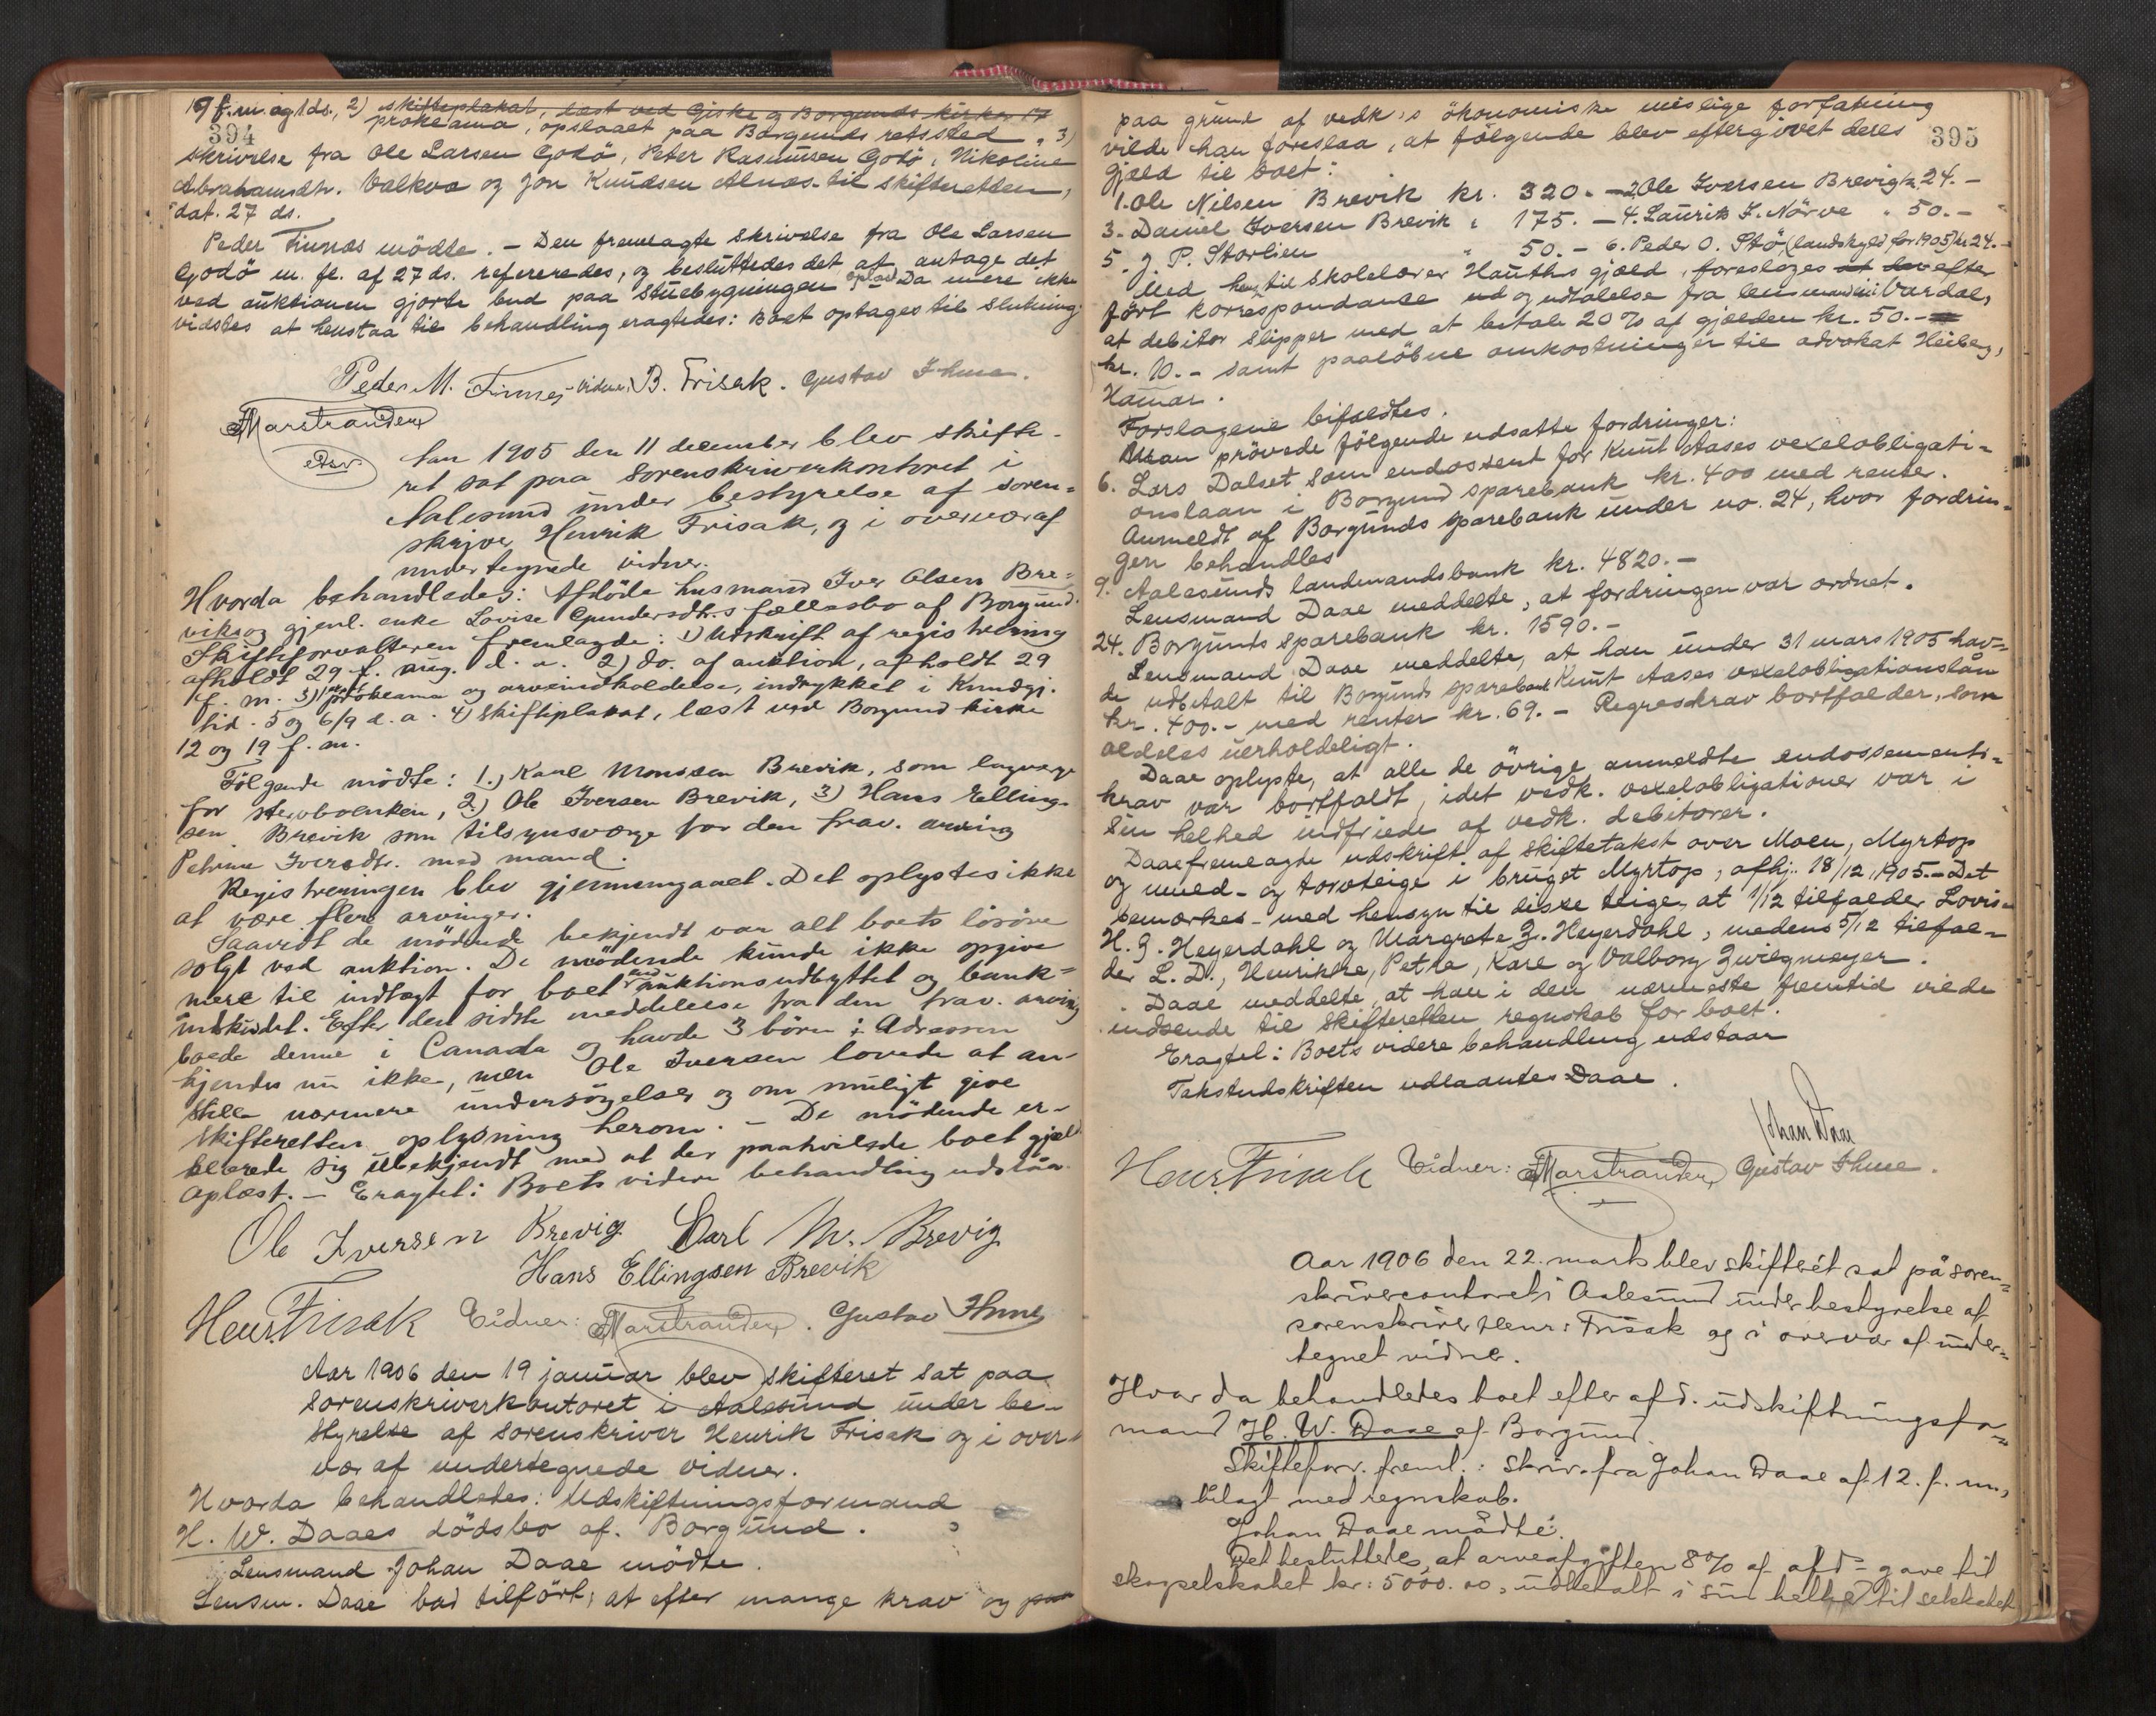 394
19 f.m. og 1 ds., 2) skifteplakat, læst ved Giske og Borgunds kirker 17
proklama, opslaaet paa Borgunds retssted „ 3)
skrivelse fra Ole Larsen Godö, Peter Rasmussen Godö, Nikoline
Abrahamsdtr. Valkva og Jon Knudsen Alnæs til skifteretten,
dat. 27 ds.
Peder Finnæs mödte. – Den fremlagte skrivelse fra Ole Larsen
Godö m. fl. af 27 ds. refereredes, og besluttedes det at antage det
ved auktionen gjorte bud paa stuebygningen. Da mere ikke
vidstes at henstaa til behandling eragtedes: Boet optages til slutning.
Peder M. Finnes Vidner: B. Frisak. Gustav Ihme.
Marstrander
Aar 1905 den 11 december blev skifte-
ret sat paa Sorenskriverkontoret i
Aalesund under bestyrelse af soren=
skriver Henrik Frisak, og i overvær af
undertegnede vidner.
Hvorda behandledes: Afdöde husmand Iver Olsen Bre=
viks og gjenl. enke Lovise Gundersdtr.s fællesbo af Borgund.
Skifteforvalteren fremlagde: 1) Udskrift af registrering
afholdt 29 f. aug. d. a. 2) do. af auktion, afholdt 29
f. m. 3) proklama og arveindkaldelse, indrykket i Kundgj.
tid. 5 og 6/9 d. a. 4) skifteplakat, læst ved Borgund kirke
12 og 19 f. m.
Fölgende mödte: 1.) Karl Monssen Brevik, som lagværge
for stervboenken, 2) Ole Iversen Brevik, 3) Hans Elling-
sen Brevik som tilsynsværge for den frav. arving
Petrine Iversdtr. med mand.
Registreringen blev gjennemgaaet. Det oplystes ikke
at være flere arvinger.
Saavidt de mödende bekjendt var alt boets lösöre
solgt ved auktion. De mödende kunde ikke opgive
mere til indtægt for boet end auktionsudbyttet og bank=
indskudet. Efter den sidste meddelelse fra den frav. arving
boede denne i Canada og havde 3 börn. Adressen
kjendes nu ikke, men Ole Iversen lovede at an-
stille nærmere undersögelser og om muligt give
skifteretten oplysning herom. – De mödende er-
klærede sig ubekjendt med at der paahvilede boet gjæld.
Oplæst. – Eragtet: Boets videre behandling udstaar.
Ole Iversen Brevig Carl M. Brevig
Hans Ellingsen Brevik
Henr. Frisak Vidner: Marstrander. Gustav Ihme
Aar 1906 den 19 januar blev skifteret sat paa
Sorenskriverkontoret i Aalesund under be-
styrelse af Sorenskriver Henrik Frisak og i over-
vær af undertegnede vidner.
Hvorda behandledes: Udskiftningsformand
H. W. Daaes dödsbo af Borgund.
Lensmand Johan Daae mödte.
Lensm. Daae bad tilfört, at efter mange krav og paa
395
paa grund af vedk.s ökonomiske mislige forfatning
vilde han foreslaa, at fölgende blev eftergivet deres
gjæld til boet:
1. Ole Nilsen Brevik kr. 320. – 2 Ole Iversen Brevig kr. 24. –
3. Daniel Iversen Brevik „ 175. – 4. Laurits J. Nörve „ 50. –
5. J. P. Storlien „ 50. – 6. Peder O. Stö (landskyld for 1905) kr 24. –
Med hens. til skolelærer Hauths gjæld, foresloges at der efter
fört korrespondance ud og udtalelse fra lensmanden i Vardal,
at debitor slipper med at betale 20 % af gjælden kr. 50. –
kr. 10. – samt paalöbne omkostninger til advokat Heiberg,
Hamar.
Forslagene bifaldtes.
Man prövede fölgende udsatte fordringer:
6. Lars Dalset som endossent for Knut Aases vexelobligati=
onslaan i Borgund sparebank kr. 400 med renter.
Anmeldt af Borgunds sparebank under no. 24, hvor fordrin=
gen behandles
9. Aalesunds landmandsbank kr. 4820. –
Lensmand Daae meddelte, at fordringen var ordnet.
24. Borgunds sparebank kr. 1590. –
Lensmand Daae meddelte, at han under 31 mars 1905 hav=
de udbetalt til Borgunds sparebank Knut Aases vexelobligationslån
kr. 400. – med renter kr. 69. – Regreskrav bortfalder, som
aldeles uerholdeligt.
Daae oplyste, at alle de övrige anmeldte endossements=
krav var bortfaldt, idet vedk. vexelobligationer var i
sin helhed indfriede af vedk. debitorer.
Daae fremlagde udskrift af skiftetakst over Moen, Myrtop
og mæd- og torvteige i bruget Myrtop, afhj. 18/12 1905. – Det
bemærkes – med hensyn til disse teige, at 1/12 tilfalder Lovise
H. G. Heyerdahl og Margrete Z. Heyerdahl, medens 5/12 tilfal=
der L. D., Henrikke, Petra, Kare og Valborg Zwilgmeyer.
Daae meddelte, at han i den nærmeste fremtid vilde
indsende til skifteretten regnskab for boet.
Eragtet: Boets videre behandling udstaar
Takstudskriften udlaantes Daae.
Johan Daae
Henr. Frisak Vidner: Marstrander Gustav Ihme.
Aar 1906 den 22. marts blev skifteret sat på soren=
skrivercontoret i Aalesund under bestyrelse af
sorenskriver Henr: Frisak og i overvær af under=
tegnet vidner.
Hvor da behandledes boet efter afd. udskiftningsfor=
mand H. W. Daae af Borgund.
Skifteforv. freml.: skriv. fra Johan Daae af 12. f. m.,
bilagt med regnskab.
Johan Daae mødte.
Det besluttedes, at arveafgiften 8% af afd= gave til
skogselskabet kr: 5000.00, udbetalt i sin helhed til selskabet